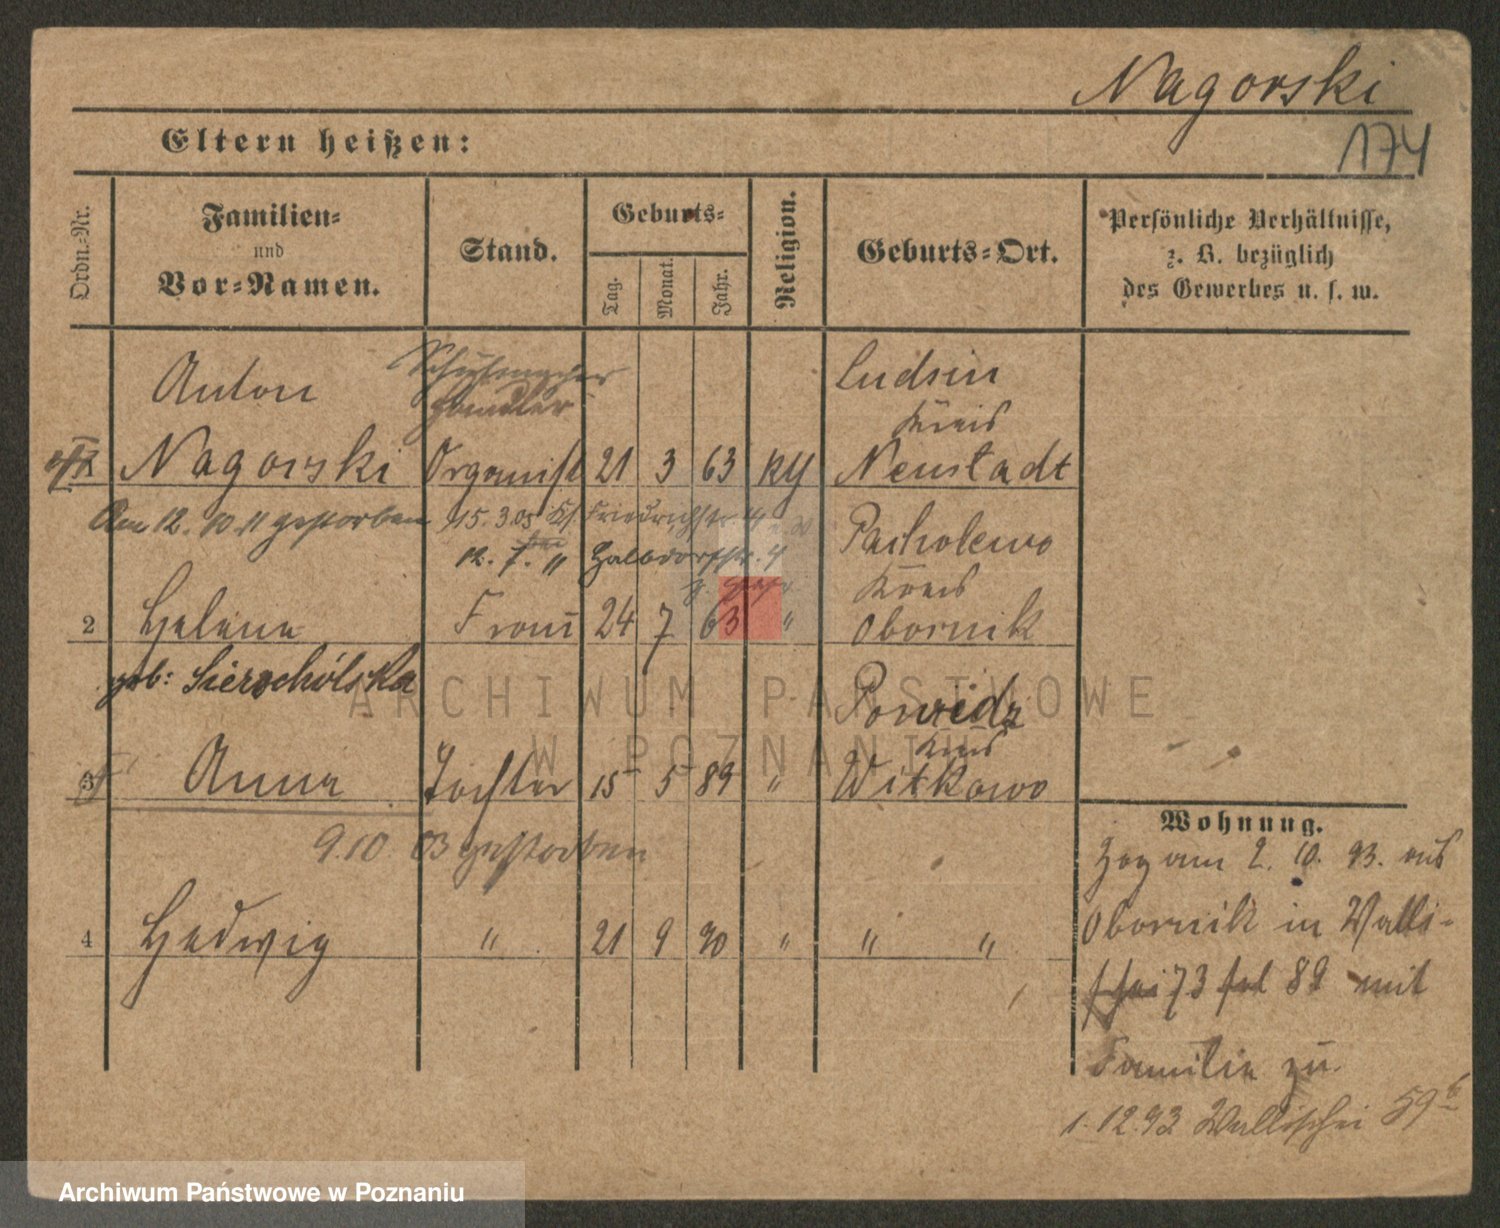 Nagorski
174
Eltern heißen:
Ordn.-Nr.
Familien-
und
Vor-Namen.
Stand.
Geburts-
Tag.
Monat.
Jahr.
Religion.
Geburts-Ort.
Persönliche Verhältnisse,
z. B. bezüglich
des Gewerbes u. s. w.
Anton
händler
Ludsin
Kreis
Nagorski Organist 21 3 63 Neustadt
Am 12. 10. 11 gestorben 15. 3. 05 Friedrichstr.
12. 7. " Halbdorfstr. 4
Pacholewo
Kreis
2 Helene Frau 24 7 63 " Obornik
geb: Sierschólska
Powidz
Kreis
3 Anna Tochter 15 5 89 " Witkowo
9. 10. 03 gestorben
4 Hedwig " 21 9 90 " " "
Wohnung.
Zog am 2. 10. 93. aus
Obornik in Walli-
schei 73 89 mit
Familie zu
1. 12. 93 Wallischei 59
ARCHIWUM PAŃSTWOWE
W POZNANIU
Archiwum Państwowe w Poznaniu